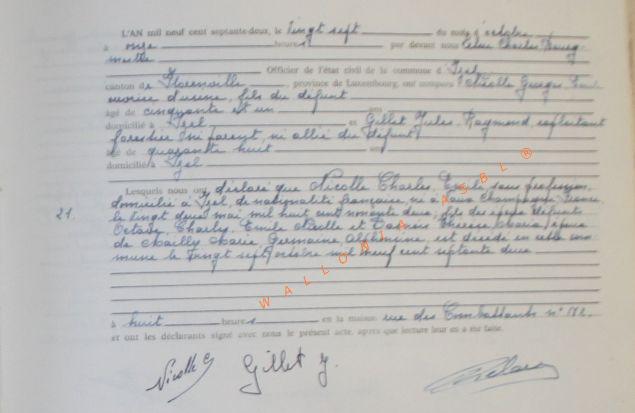 L'AN mil neuf cent septante-deux, le vingt sept du mois d'octobre
à onze heures par devant nous Charles Bourg-
mestre
Officier de l'état civil de la commune d'Izel
canton de Florenville, province de Luxembourg, ont comparu Nicolle Georges, Emile
ouvrier d'usine, fils du défunt
âgé de cinquante et un ans
domicilié à Izel et Gillet Jules, Raymond, exploitant
forestier (ni parent, ni allié du défunt)
âgé de quarante huit ans
domicilié à Izel
Lesquels nous ont déclaré que Nicolle Charles, Emile sans profession,
21. domicilié à Izel, de nationalité française, né à Champagne France
le vingt deux mai mil huit cent nonante deux, fils des époux défunts
Octave, Charles, Emile Nicolle et Thérèse Maria, époux
de Mailly Marie, Germaine, est décédé en cette com-
mune le vingt sept octobre mil neuf cent septante deux
à huit heures en la maison rue des Combattants n° 172.
et ont les déclarants signé avec nous le présent acte, après que lecture leur en a été faite.
Nicolle G Gillet J.
WALLONIA ASBL ®